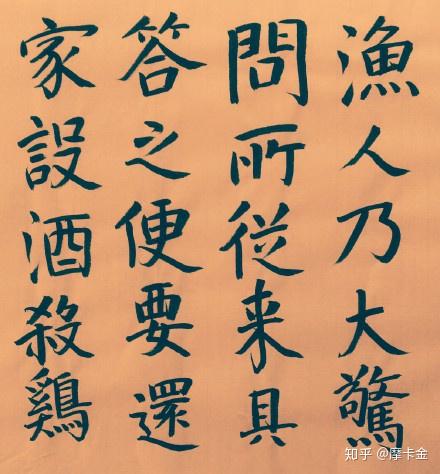 漁人乃大驚
問所従来具
答之便要還
家設酒殺鶏
知乎 @摩卡金